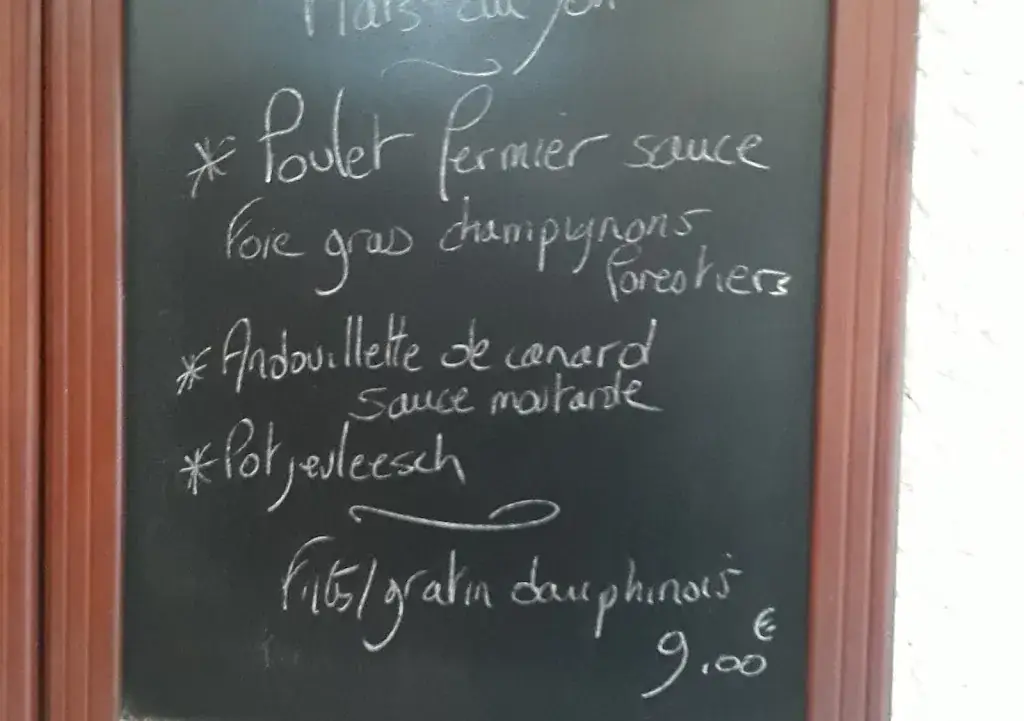 Plats du jour
* Poulet fermier sauce
Foie gras champignons
forestiers
* Andouillette de canard
sauce moutarde
* Potjevleesch
Frites/gratin dauphinois
9.00€